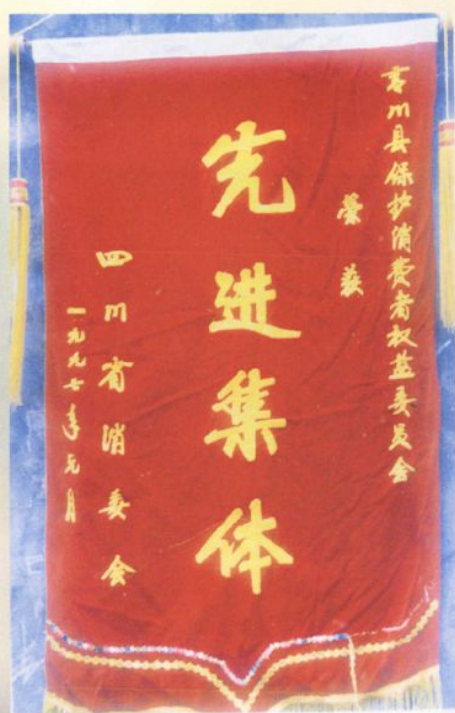 青川县保护消费者权益委员会
荣获
先进集体
四川省消委会
一九九七年元月